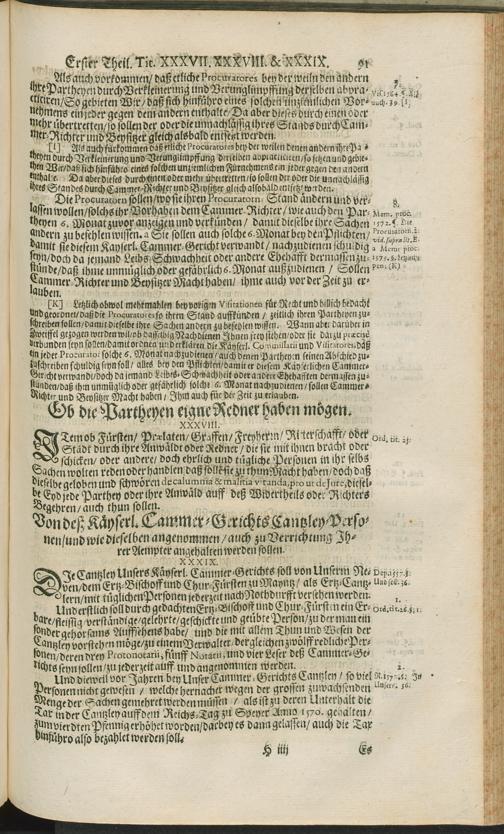 Erster Theil. Tit. XXXVII. XXXVIII. & XXXIX. 91
Als auch vorkommen / daß etliche Procuratores bey der weiln den andern
ihre Partheyen durch Verkleinerung und Verunglimpffung derselben abpra-
cticiren / So gebieten Wir / daß sich hinführo eines solchen unziemlichen Vor-
nehmens ein jeder gegen dem andern enthalte / Da aber dieses durch einen oder
mehr übertretten / so sollen der oder die unnachläßig ihres Stands durch Cam-
mer-Richter und Beysitzer gleich alsbald entsetzt werden.
[I] Als auch fürkommen daß etliche Procuratores bey der weilen denen andern ihre Par-
theyen durch Verkleinerung und Verunglimpffung derselben abpracticiren / so setzen und gebie-
ten Wir / daß sich hinführo eines solchen unziemlichen Fürnehmens ein jeder gegen den andern
enthalte. Da aber dieses durch einen oder mehr übertretten / so sollen der oder die unnachläßig
ihres Standes durch Cammer-Richter und Beysitzer gleich alsobald entsetzt werden.
Die Procuratoren sollen / wo sie ihren Procuratorn Stand ändern und ver-
lassen wollen / solchs ihr Vorhaben dem Cammer-Richter / wie auch den Par-
theyen 6. Monat zuvor anzeigen und verkünden / damit dieselbe ihre Sachen
andern zu befehlen wissen. Sie sollen auch solche 6. Monat bey den Pflichten /
damit sie diesem Kayserl. Cammer-Gericht verwandt / nachzudienen schuldig
seyn / doch da jemand Leibs-Schwachheit oder andere Ehehafft dermassen zu-
stünde / daß ihme unmüglich oder gefährlich 6. Monat außzudienen / Sollen
Cammer-Richter und Beysitzer Macht haben / ihme auch vor der Zeit zu er-
lauben.
[K] Letzlich obwol mehrmahlen bey vorigen Visitationen für Recht und billich bedacht
und geordnet / daß die Procuratores so ihren Stand auffkünden / zeitlich ihren Partheyen zu-
schreiben sollen / damit dieselbe ihre Sachen andern zu befehlen wissen.
in jeder Procurator solche 6. Monat nachzudienen / auch denen Partheyen seinen Abschied zu-
zuschreiben schuldig seyn soll / alles bey den Pflichten / damit er diesem Kayserlichen Cammer-
Gericht verwandt / doch da jemand Leibs-Schwachheit oder andere Ehehafften dermassen zu-
stünden / daß ihm unmüglich oder gefährlich solche 6. Monat nachzudienen / sollen Cammer-
Richter und Beysitzer Macht haben / Ihm auch für der Zeit zu erlauben.
Ob die Partheyen eigne Redner haben mögen.
XXXVIII.
ITem ob Fürsten / Prælaten / Graffen / Freyherrn / Ritterschafft / oder
Städt durch ihre Anwäldt oder Redner / die sie mit ihnen bracht oder
schicken / oder andere / doch ehrlich und tügliche Personen in ihr selbs
Sachen wolten reden oder handlen / daß sollen sie zu thun Macht haben / doch daß
dieselbe geloben und schwören de calumnia & malitia vitanda, prout de Jure, diesel-
be Eyd jede Parthey oder ihre Anwäld auff deß Widertheils oder Richters
Begehren / auch thun sollen.
Von deß Käyserl. Cammer-Gerichts Cantzley-Perso-
nen / und wie dieselben angenommen / auch zu Verrichtung Ih-
rer Aempter angehalten werden sollen.
XXXIX.
DJe Cantzley Unsers Kayserl. Cammer-Gerichts soll von Unserm Ne-
ven / dem Ertz-Bischoff und Chur-Fürsten zu Mayntz / als Ertz-Cantz-
lern / mit tüglichen Personen jederzeit nach Nothdurfft versehen werden.
Und erstlich soll durch gedachten Ertz-Bischoff und Chur-Fürsten ein Er-
bare / fleissig / verständige / gelehrte / geschickte und geübte Person / zu der man ein
sonder gehorsams Auffsehens habe / und die mit allem Thun und Wesen der
Cantzley vorstehen möge / zu einem Verwalter / dergleichen zwölff redliche Per-
sonen / deren drey Protonotarii, fünff Notarii, und vier Leser deß Cammer-Ge-
richts seyn sollen / zu jederzeit auff und angenommen werden.
Und dieweil vor Jahren bey Unser Cammer-Gerichts Cantzley / so viel
Personen nicht gewesen / welche hernacher wegen der grossen zuwachsenden
Menge der Sachen gemehret werden müssen / als ist zu deren Unterhalt die
Tax in der Cantzley auff dem Reichs-Tag zu Speyer Anno 1570. gehalten /
zum vierdten Pfennig erhöhet worden / darbey es dann gelassen / auch die Tax
hinführo also bezahlet werden soll.
H iiij Es
8.
Mem. proc.
1572. §. Die
Procuratorn.
Ord. tit. 23.
1.
2.